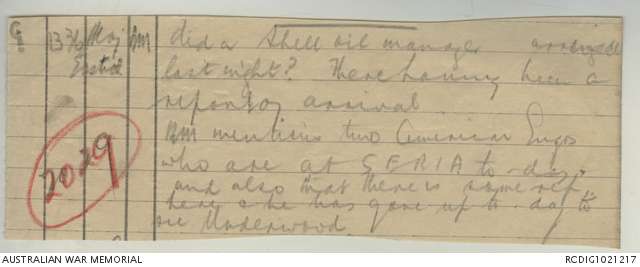 G 1330 Maj BM did a Shell oil manager arrive
Eastick last night? There having been a
report of arrival
2029
BM mentions two American Engrs
who are at SERIA to-day,
and also that there is some ref
here & he has gone up to-day to
see Underwood
AUSTRALIAN WAR MEMORIAL
RCDIG1021217